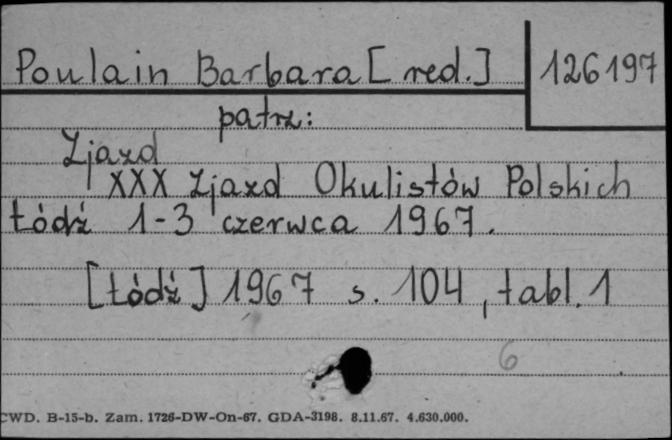 Poulain Barbara [red.] 126197
patrz:
Zjazd
XXX Zjazd Okulistów Polskich
Łódź 1-3 czerwca 1967.
[Łódź] 1967 s. 104, tabl. 1
6
CWD. B-15-b. Zam. 1726-DW-On-67. GDA-3198. 8.11.67. 4.630.000.